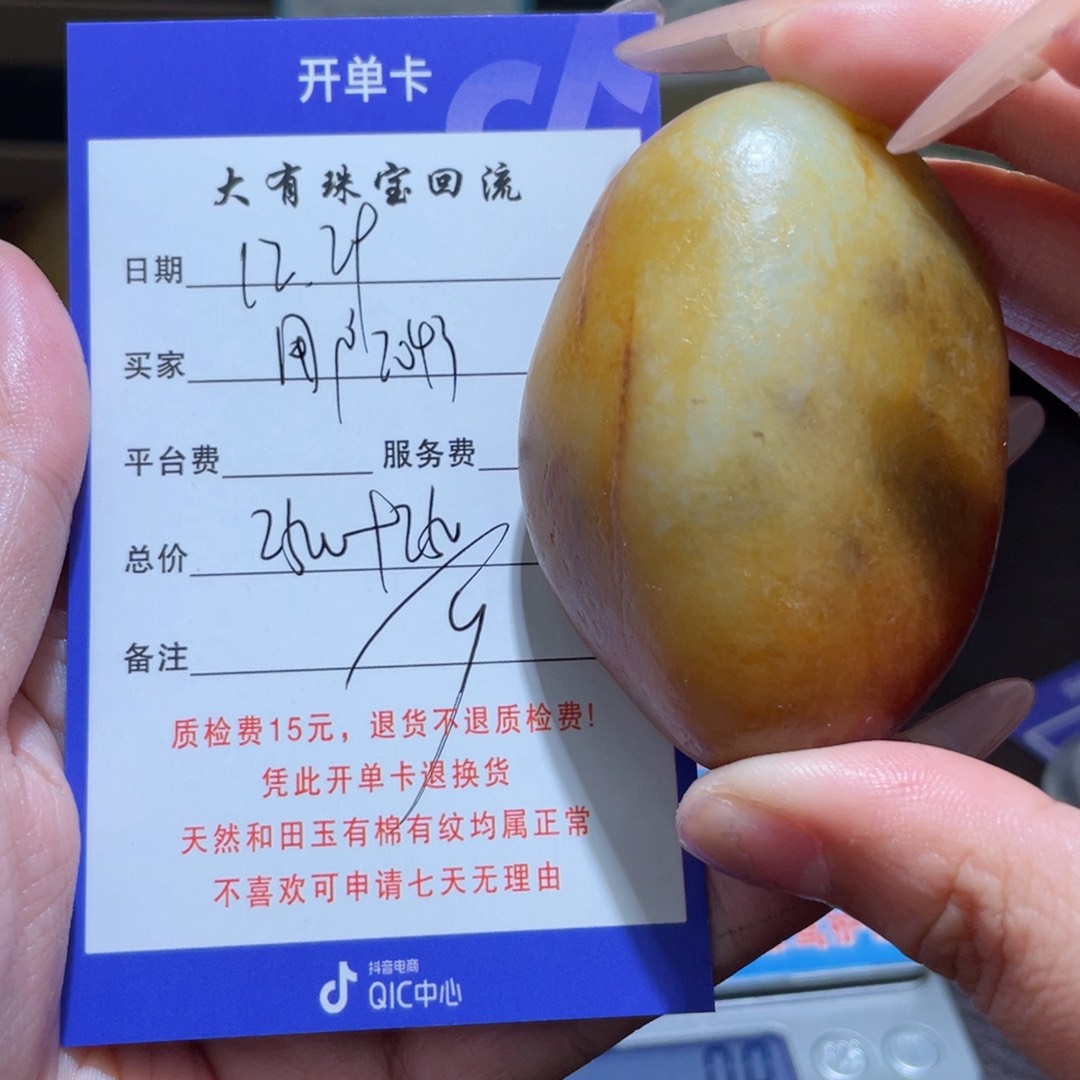 开单卡
大有珠宝回流
日期 12.29
买家 用户2043
平台费 服务费
总价
备注
质检费15元，退货不退质检费！
凭此开单卡退换货
天然和田玉有棉有纹均属正常
不喜欢可申请七天无理由
抖音电商
QIC中心